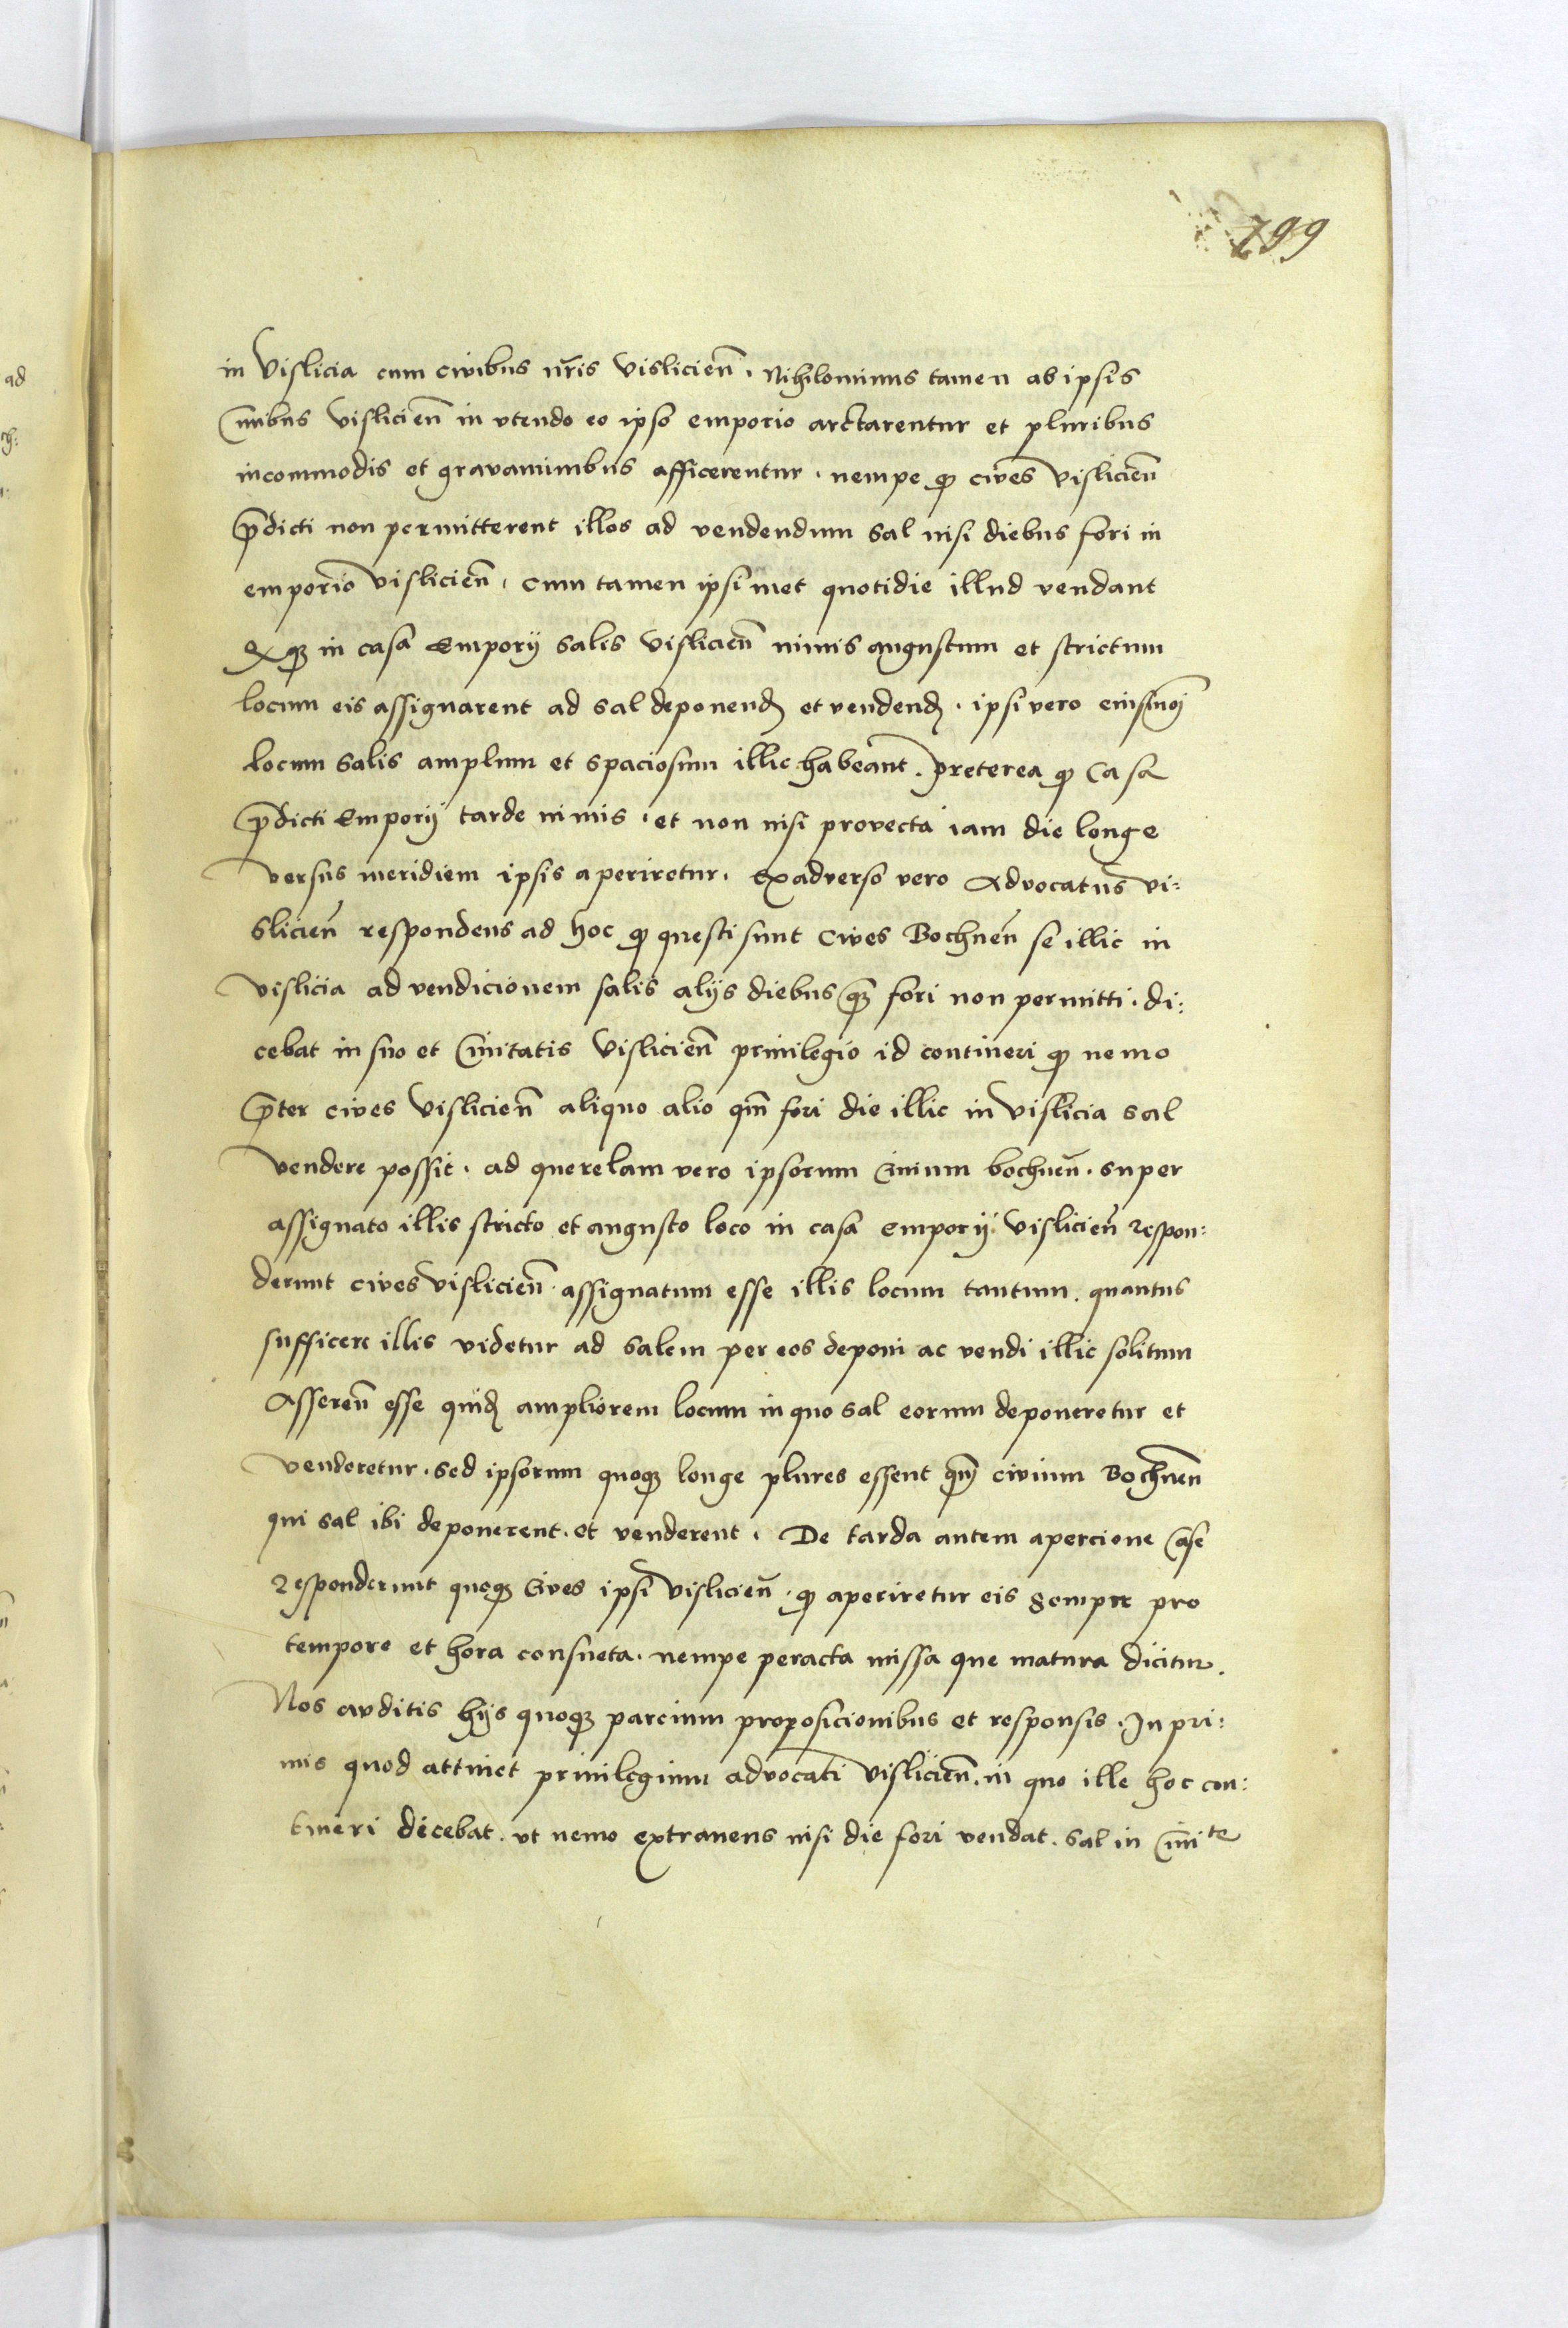 799
in Vislicia cum civibus nr̃is Vislicieñ. Nihilominus tamen ab ipsis
Civibus Vislicieñ in utendo eo ipso emporio arctarentur et pluribus
incommodis et gravaminibus afficerentur. nempe qȝ cives Vislicieñ
p̃dicti non permitterent illos ad vendendum sal nisi diebus fori in
emporio Vislicieñ. cum tamen ipsimet quotidie illud vendant
in casa Emporij salis Vislicieñ nimis angustum et strictum
locum eis assignarent ad sal deponenđ et vendenđ. ipsi vero
locum salis amplum et spaciosum illic habeant. preterea qȝ Casa
p̃dicti Emporij tarde nimis. et non nisi provecta iam die longe
versus meridiem ipsis aperiretur. Exadverso vero Advocatus Vi:
slicieñ respondens ad hoc qȝ questi sunt Cives Bochneñ se illic in
Vislicia ad vendicionem salis alijs diebus q̃ȝ fori non permitti. di:
cebat in suo et Civitatis Vislicieñ privilegio id contineri qȝ nemo
p̃ter cives Vislicieñ aliquo alio qm̃ fori die illic in Vislicia sal
vendere possit. ad querelam vero ipsorum Civium bochneñ. super
assignato illis stricto et angusto loco in casa emporij Vislicieñ respon:
derunt cives Vislicieñ. assignatum esse illis locum tantum. quantus
sufficere illis videtur ad salem per eos deponi ac vendi illic solitum
Assereñ esse quiđ ampliorem locum in quo sal eorum deponeretur et
venderetur. sed ipsorum quoqȝ longe plures essent qm̃ civium Bochneñ
qui sal ibi deponerent. et venderent. De tarda autem apercione Case
responderunt quoqȝ Cives ipsi Vislicieñ. qȝ aperiretur eis semper pro
tempore et hora consueta. nempe peracta missa que matura dicitur.
Nos auditis hijs quoqȝ parcium proposicionibus et responsis. In pri:
mis quod attinet privilegium advocati Vislicieñ. in quo ille hoc con:
tineri dicebat. ut nemo extraneus nisi die fori vendat. sal in Civite